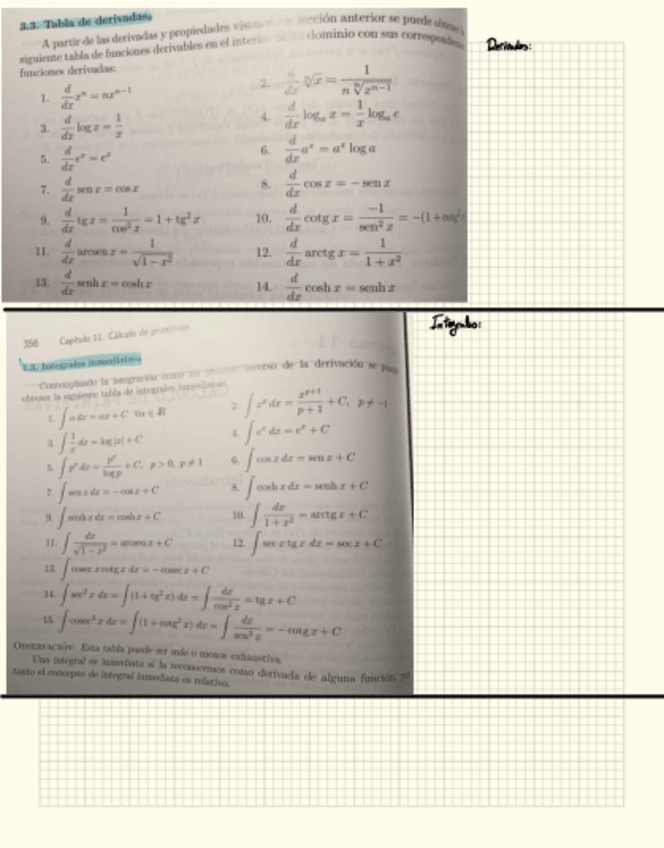 3.3. Tabla de derivadas
A partir de las derivadas y propiedades sección anterior se puede
siguiente tabla de funciones derivables en el dominio con sus
funciones derivadas:
1. d/dx x^n = nx^{n-1}
2. d/dx ⁿ√x = 1/(n ⁿ√(x^{n-1}))
3. d/dx log x = 1/x
4. d/dx log_a x = 1/x log_a e
5. d/dx e^x = e^x
6. d/dx a^x = a^x log a
7. d/dx sen x = cos x
8. d/dx cos x = − sen x
9. d/dx tg x = 1/cos² x = 1 + tg² x
10. d/dx cotg x = −1/sen² x = −(1 + cotg²
11. d/dx arcsen x = 1/√(1 − x²)
12. d/dx arctg x = 1/(1 + x²)
13. d/dx senh x = cosh x
14. d/dx cosh x = senh x
Derivadas:
356 Capítulo 11. Cálculo de primitivas
1.3. Integrales inmediatas
Contemplando la integración como un proceso inverso de la derivación se
obtener la siguiente tabla de integrales inmediatas:
1. ∫ a dx = ax + C ∀a ∈ ℝ
2. ∫ x^p dx = x^{p+1}/(p + 1) + C, p ≠ −1
3. ∫ 1/x dx = log |x| + C
4. ∫ e^x dx = e^x + C
5. ∫ p^x dx = p^x/log p + C, p > 0, p ≠ 1
6. ∫ cos x dx = sen x + C
7. ∫ sen x dx = − cos x + C
8. ∫ cosh x dx = senh x + C
9. ∫ senh x dx = cosh x + C
10. ∫ dx/(1 + x²) = arctg x + C
11. ∫ dx/√(1 − x²) = arcsen x + C
12. ∫ sec x tg x dx = sec x + C
13. ∫ cosec x cotg x dx = − cosec x + C
14. ∫ sec² x dx = ∫ (1 + tg² x) dx = ∫ dx/cos² x = tg x + C
15. ∫ cosec² x dx = ∫ (1 + cotg² x) dx = ∫ dx/sen² x = − cotg x + C
OBSERVACIÓN: Esta tabla puede ser más o menos exhaustiva.
Una integral es inmediata si la reconocemos como derivada de alguna función
tanto el concepto de integral inmediata es relativo.
Integrales: